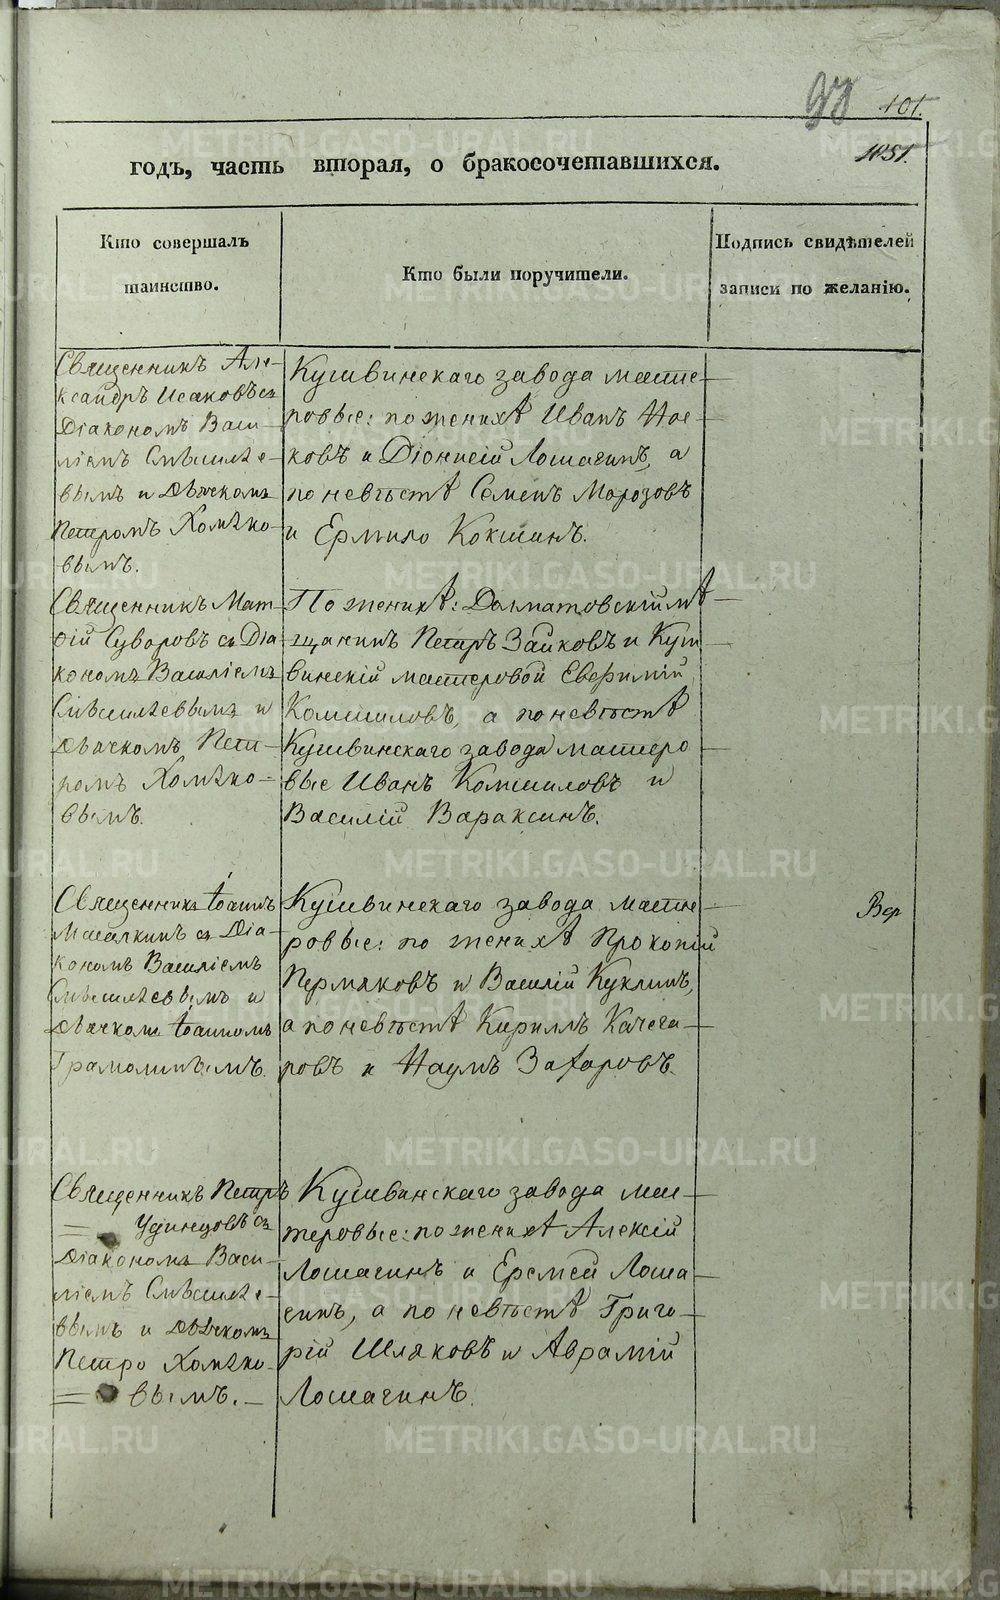 101.
1851.
годъ, часть вторая, о бракосочетавшихся.
Кто совершалъ
таинство.
Кто были поручители.
Подпись свидѣтелей
записи по желанію.
Священникъ Але-
ксандръ Исаковъ съ
Діакономъ Васи-
ліемъ
вымъ и Дьячкомъ
Петромъ Хомяко-
вымъ.
Кушвинскаго завода масте-
ровые: по женихѣ Иванъ Нос-
ковъ и Діонисій Лошагинъ, а
по невѣстѣ Семенъ Морозовъ
и Ермило Кокшинъ.
Священникъ Мат-
ѳій Суворовъ съ Діа
кономъ Василіемъ
и
Дьячкомъ Пет-
ромъ Хомяко-
вымъ.
По женихѣ: Далматовскій мѣ-
щанинъ Петръ Зайковъ и Куш-
винскій мастеровой Евфимій
Комшиловъ, а по невѣстѣ
Кушвинскаго завода мастеро-
вые Иванъ Комшиловъ и
Василій Вараксинъ.
Священникъ Іоаннъ
съ Діа-
кономъ Василіемъ
и
Дьячкомъ Іоанномъ
Кушвинскаго завода масте-
ровые: по женихѣ Прокопій
Пермяковъ и Василій Куклинъ,
а по невѣстѣ Кириллъ Качега-
ровъ и Наумъ Захаровъ.
Вер
Священникъ Петръ
Удинцовъ съ
Діакономъ Васи-
ліемъ
вымъ и Дьячкомъ
Петро Хомяко-
вымъ.
Кушвинскаго завода мас-
теровые: по женихѣ Алексій
Лошагинъ и Еремей Лоша-
гинъ, а по невѣстѣ Григо-
рій Шляковъ и Аврамій
Лошагинъ.
METRIKI.GASO-URAL.RU